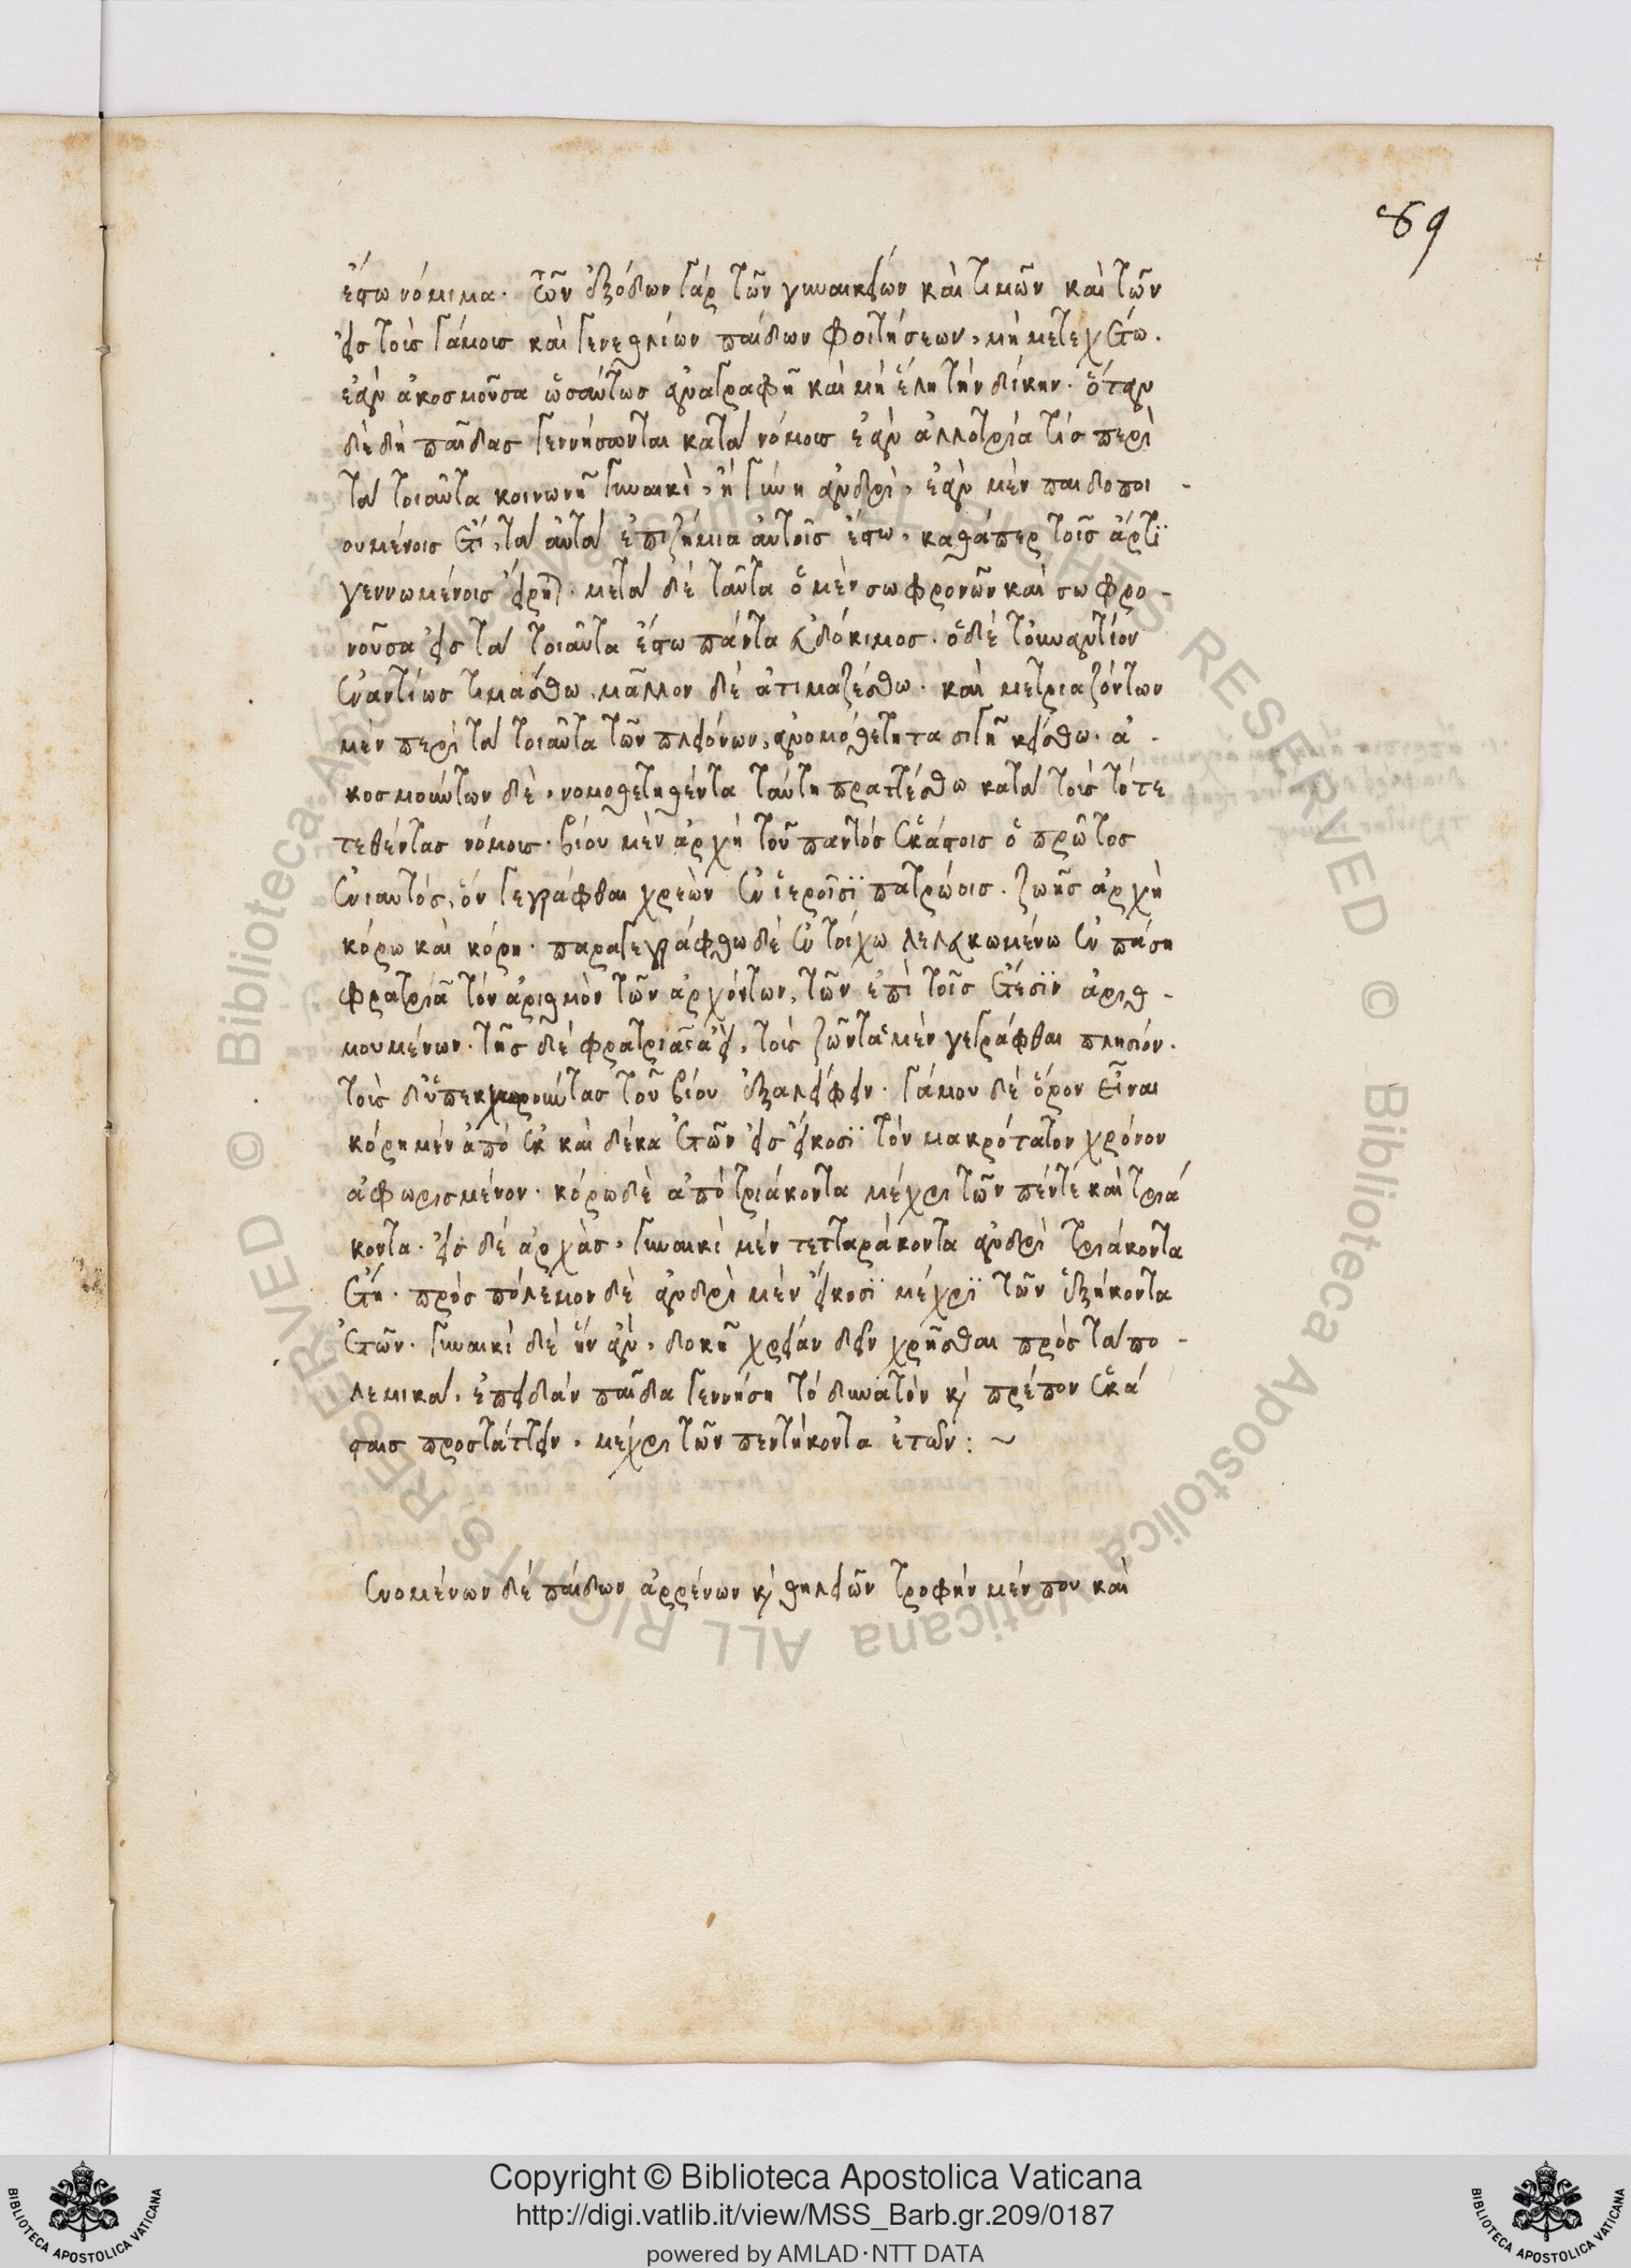 89
ἔστω νόμιμα. τῶν ἐξόδων γάρ τῶν γυναικείων καὶ τιμῶν καὶ τῶν
εἰς τοὺς γάμους καὶ γενεθλίων παίδων φοιτήσεων, μὴ μετεχέτω.
ἐὰν ἀκοσμοῦσα ὡσαύτως ἀναγραφῆ καὶ μὴ ἕλη τὴν δίκην. ὅταν
δὲ δὴ παῖδας γεννήσωνται κατὰ νόμους ἐὰν ἀλλοτρία τίς περὶ
τὰ τοιαῦτα κοινωνῆ γυναικὶ, ἢ γύνη ἀνδρὶ, ἐὰν μὲν παιδοποι-
ουμένοις ἔτι, τὰ αὐτὰ ἐπιζήμια αὐτοῖς ἔστω, καθάπερ τοῖς ἄρτϊ
γεννωμένοις εἴρηται. μετὰ δὲ ταῦτα ὁ μὲν σωφρονῶν καὶ σωφρο-
νοῦσα εἰς τὰ τοιαῦτα ἔστω πάντα εὐδόκιμος. ὁ δὲ τοὐναντίον
ἐναντίως τιμάσθω, μᾶλλον δὲ ἀτιμαζέσθω. καὶ μετριαζόντων
μὲν περὶ τὰ τοιαῦτα τῶν πλειόνων, ἀνομόθετητα σιγῆ κείσθω. ἀ-
κοσμούντων δὲ, νομοθετηθέντα ταύτη πραττέσθω κατὰ τοὺς τότε
τεθέντας νόμους. βίου μὲν ἀρχὴ τοῦ παντός ἑκάστοις ὁ πρῶτος
ἐνιαυτός, ὃν γεγράφθαι χρεὼν ἐν ἱεροῖσϊ πατρώοις. ζωῆς ἀρχὴ
κόρω καὶ κόρη. παραγεγράφθω δὲ ἐν τοίχω λελευκωμένω ἐν πάση
φρατρία τὸν ἀριθμὸν τῶν ἀρχόντων, τῶν ἐπὶ τοῖς ἔτεσϊν ἀριθ-
μουμένων. τῆς δὲ φρατρίας ἀεὶ, τοὺς ζῶντας μὲν γεγράφθαι πλησίον.
τοὺς δ' ὑπεκχωροῦντας τοῦ βίου ἐξαλείφειν. γάμου δὲ ὅρον εἶναι
κόρη μὲν ἀπὸ ἓκ καὶ δέκα ἐτῶν εἰς εἴκοσϊ τὸν μακρότατον χρόνον
ἀφωρισμένον. κόρω δὲ ἀπὸ τριάκοντα μέχρι τῶν πέντε καὶ τριά
κοντα. εἰς δὲ ἀρχὰς, γυναικὶ μὲν τετταράκοντα ἀνδρὶ τριάκοντα
ἔτη. πρὸς πόλεμον δὲ ἀνδρὶ μὲν εἴκοσϊ μέχρϊ τῶν ἑξήκοντα
ἐτῶν. γυναικὶ δὲ ἣν ἂν, δοκῆ χρείαν δεῖν χρῆσθαι πρὸς τὰ πο-
λεμικὰ, ἐπειδὰν παῖδα γεννήση τὸ δυνατὸν κ πρέπον ἑκά
σταις προστάττειν, μέχρι τῶν πεντήκοντα ἐτῶν : ~
ενομένων δὲ παίδων ἀρρένων κ θηλειῶν τροφὴν μέν που καὶ
© Biblioteca Apostolica Vaticana ALL RIGHTS RESERVED
© Biblioteca Apostolica Vaticana ALL RIGHTS RESERVED
Copyright © Biblioteca Apostolica Vaticana
http://digi.vatlib.it/view/MSS_Barb.gr.209/0187
powered by AMLAD·NTT DATA
BIBLIOTECA APOSTOLICA VATICANA
BIBLIOTECA APOSTOLICA VATICANA